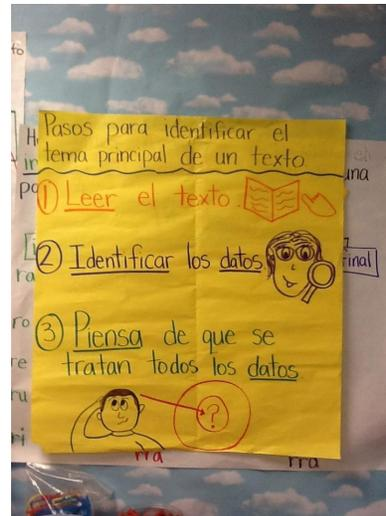 Pasos para identificar el
tema principal de un texto
① Leer el texto.
② Identificar los datos
③ Piensa de que se
tratan todos los datos
?
fo
H
in
po
una
rinal
ra
ro
re
ru
ri
rra
rra